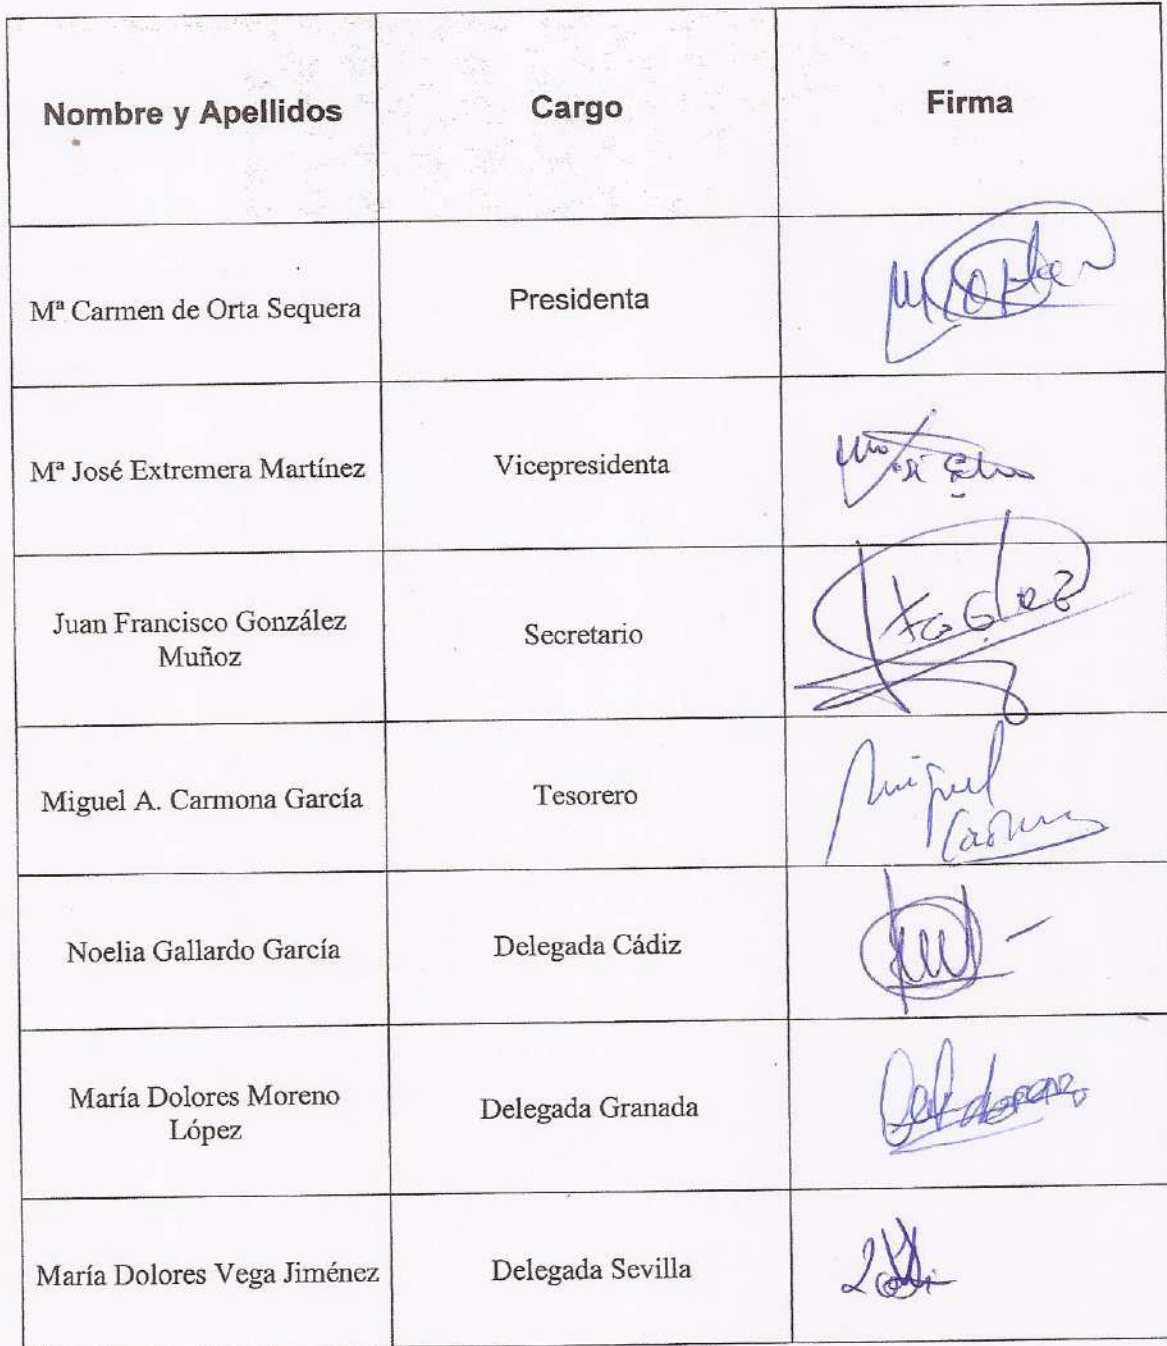 Nombre y Apellidos
Cargo
Firma
Mª Carmen de Orta Sequera
Presidenta
Mª José Extremera Martínez
Vicepresidenta
Juan Francisco González
Muñoz
Secretario
Miguel A. Carmona García
Tesorero
Miguel
Noelia Gallardo García
Delegada Cádiz
María Dolores Moreno
López
Delegada Granada
María Dolores Vega Jiménez
Delegada Sevilla